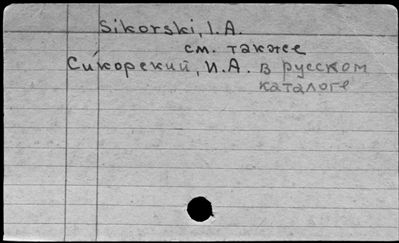 Sikorski, I.A.
см. также
Сикорский, И.А. в русском
каталоге